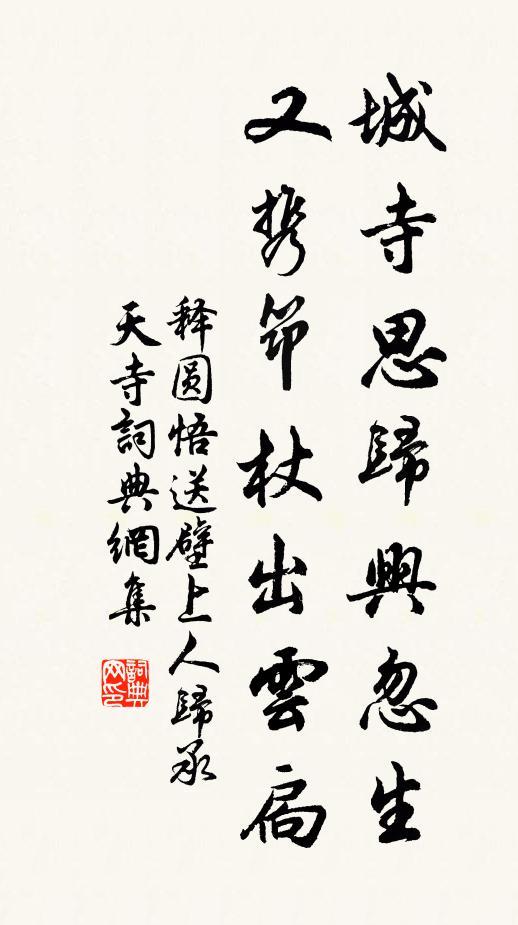 城寺思歸興忽生
又携笻杖出雲扃
释圆悟送璧上人歸承
天寺詞典網集
詞典网印